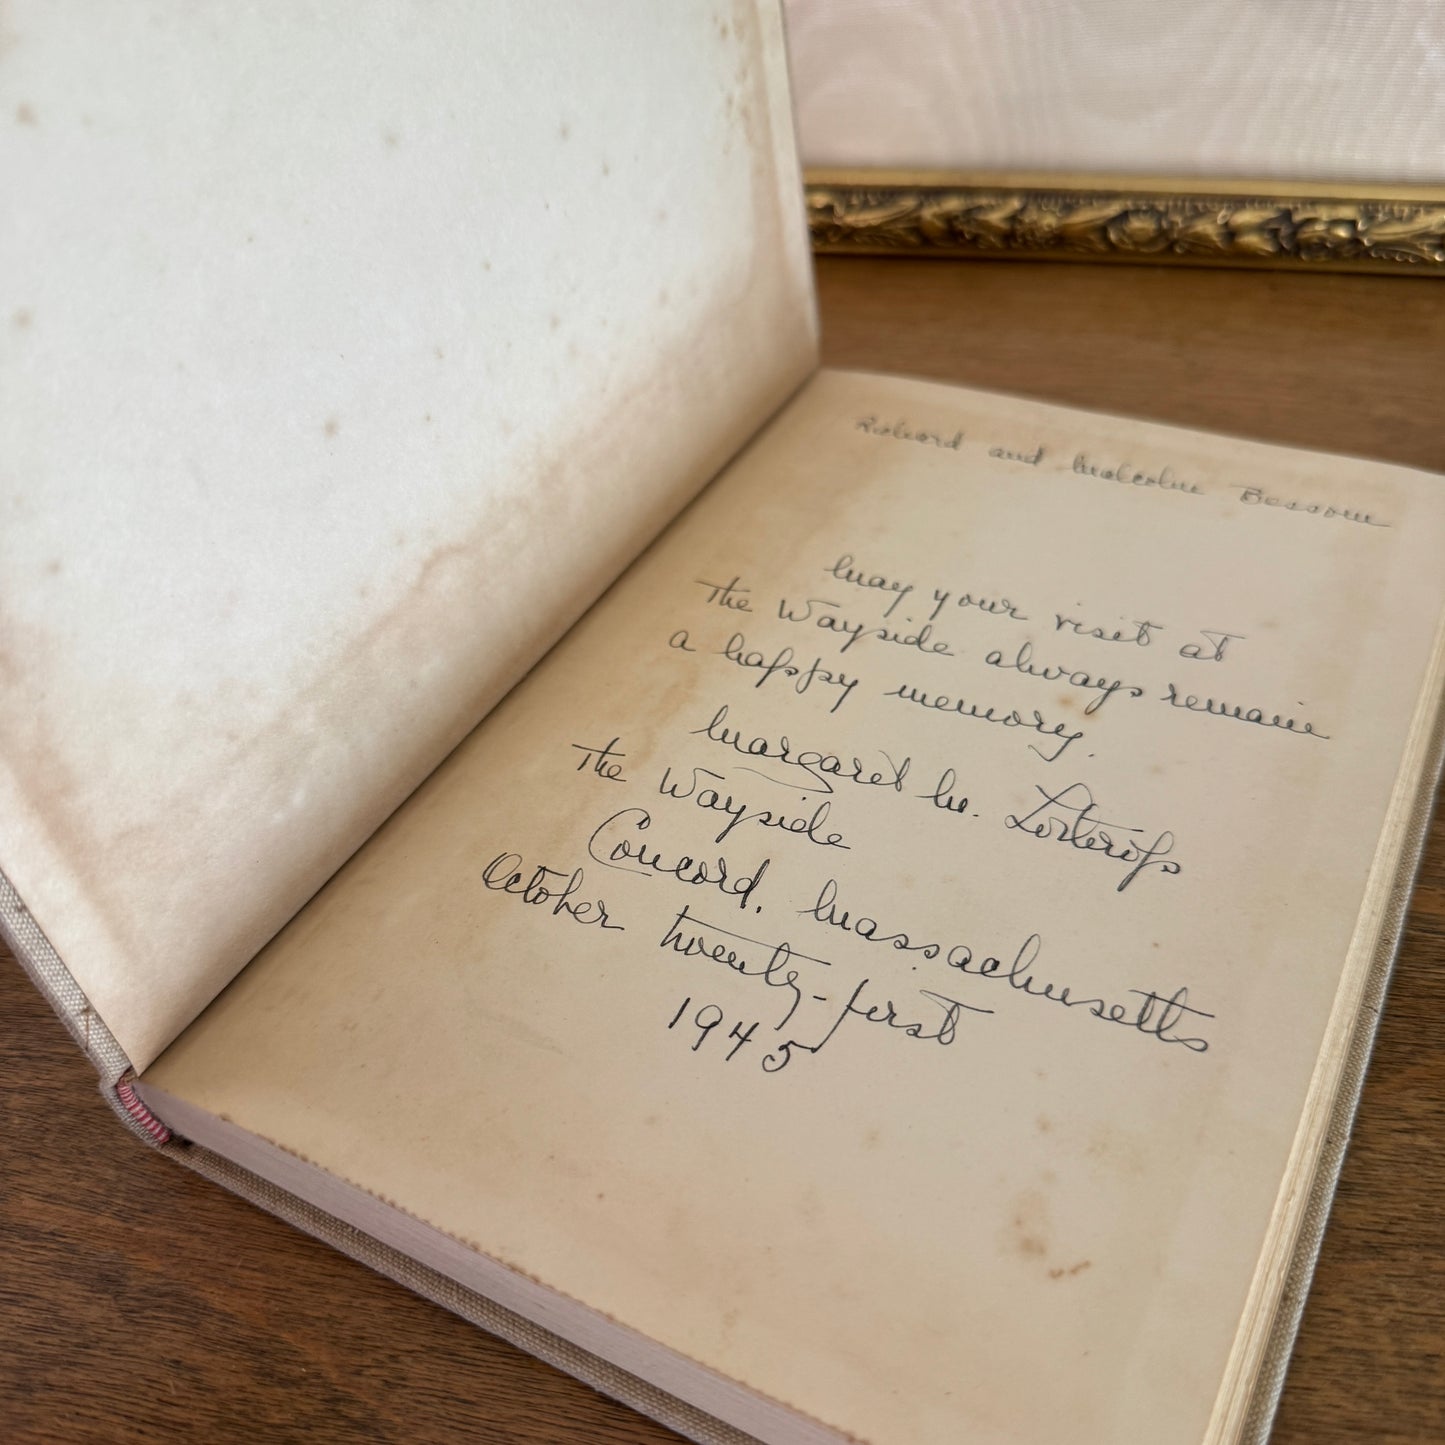 Richard and Malcolm Bessom
May your visit at
The Wayside always remain
a happy memory.
Margaret M. Lothrop
The Wayside
Concord, Massachusetts
October twenty-first
1945